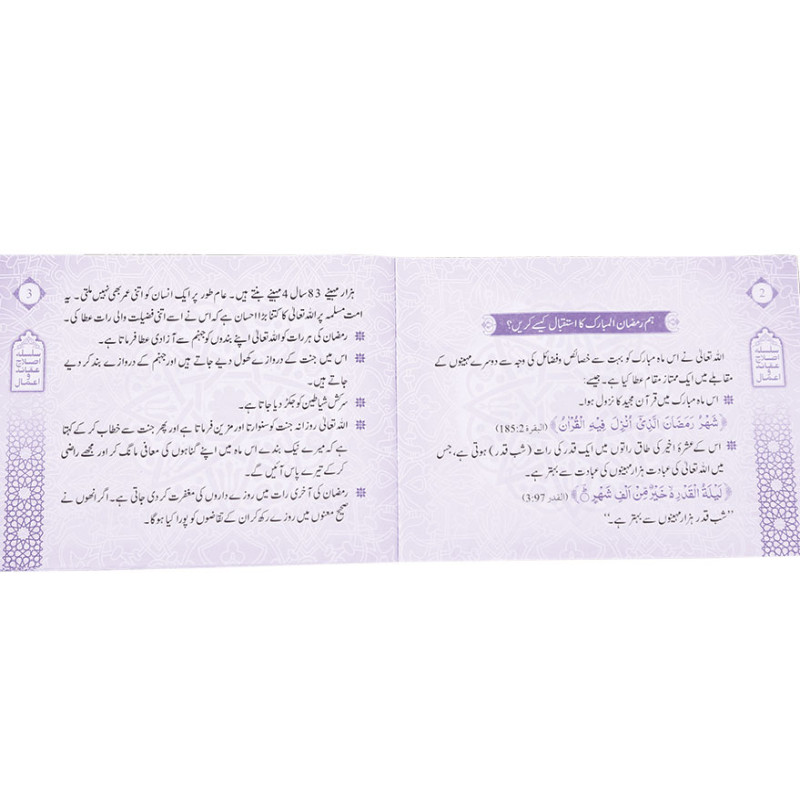 2
سلسلہ
اصلاح
عقائد
و
اعمال
ہم رمضان المبارک کا استقبال کیسے کریں؟
اللہ تعالیٰ نے اس ماہ مبارک کو بہت سے خصائص وفضائل کی وجہ سے دوسرے مہینوں کے
مقابلے میں ایک ممتاز مقام عطا کیا ہے۔ جیسے:
اس ماہ مبارک میں قرآن مجید کا نزول ہوا۔
﴿شَهْرُ رَمَضَانَ الَّذِيْٓ اُنْزِلَ فِيْهِ الْقُرْاٰنُ﴾ (البقرۃ 185:2)
اس کے عشرۂ اخیر کی طاق راتوں میں ایک قدر کی رات (شب قدر) ہوتی ہے، جس
میں اللہ تعالیٰ کی عبادت ہزار مہینوں کی عبادت سے بہتر ہے۔
﴿لَيْلَةُ الْقَدْرِ ۙ خَيْرٌ مِّنْ اَلْفِ شَهْرٍ﴾ (القدر 3:97)
”شب قدر ہزار مہینوں سے بہتر ہے۔“
3
سلسلہ
اصلاح
عقائد
و
اعمال
ہزار مہینے 83 سال 4 مہینے بنتے ہیں۔ عام طور پر ایک انسان کو اتنی عمر بھی نہیں ملتی۔ یہ
امت مسلمہ پر اللہ تعالیٰ کا کتنا بڑا احسان ہے کہ اس نے اسے اتنی فضیلت والی رات عطا کی۔
رمضان کی ہر رات کو اللہ تعالیٰ اپنے بندوں کو جہنم سے آزادی عطا فرماتا ہے۔
اس میں جنت کے دروازے کھول دیے جاتے ہیں اور جہنم کے دروازے بند کر دیے
جاتے ہیں۔
سرکش شیاطین کو جکڑ دیا جاتا ہے۔
اللہ تعالیٰ روزانہ جنت کو سنوارتا اور مزین فرماتا ہے اور پھر جنت سے خطاب کر کے کہتا
ہے کہ میرے نیک بندے اس ماہ میں اپنے گناہوں کی معافی مانگ کر اور مجھے راضی
کر کے تیرے پاس آئیں گے۔
رمضان کی آخری رات میں روزے داروں کی مغفرت کر دی جاتی ہے۔ اگر انھوں نے
صحیح معنوں میں روزے رکھ کر ان کے تقاضوں کو پورا کیا ہوگا۔